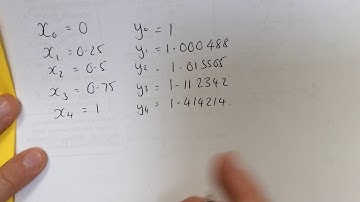 x₀ = 0 y₀ = 1
x₁ = 0.25 y₁ = 1.000488
x₂ = 0.5 y₂ = 1.015505
x₃ = 0.75 y₃ = 1.112342
x₄ = 1 y₄ = 1.414214.